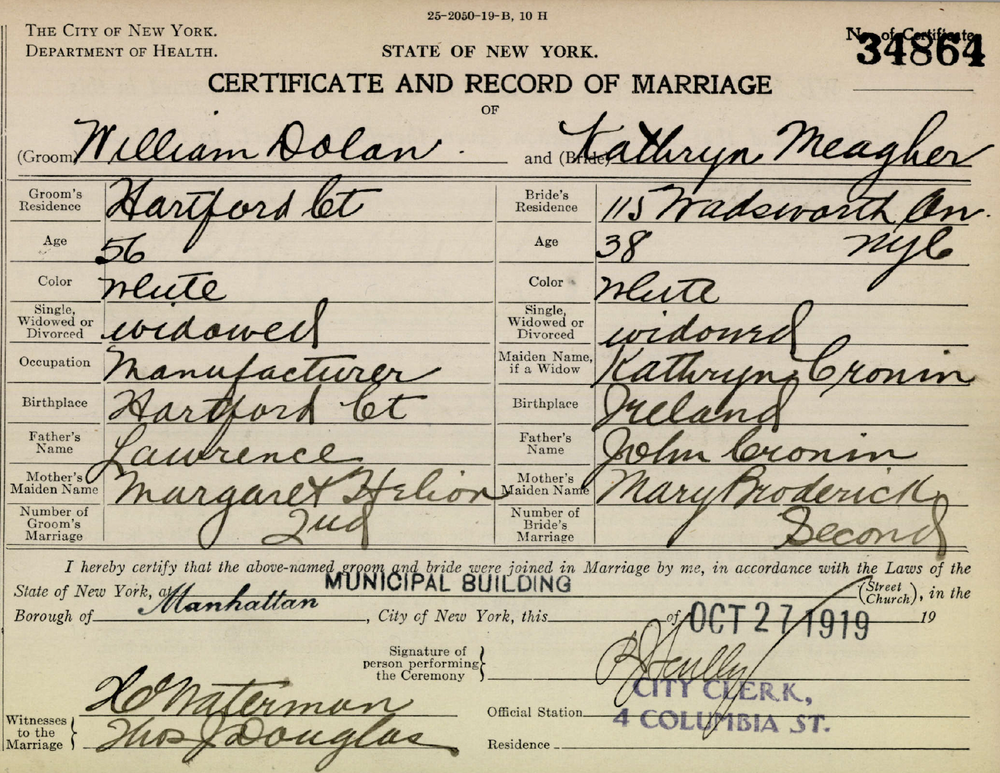 25-2050-19-B, 10 H
THE CITY OF NEW YORK.
DEPARTMENT OF HEALTH.
STATE OF NEW YORK.
No. of Certificate
34864
CERTIFICATE AND RECORD OF MARRIAGE
OF
(Groom) William Dolan and (Bride) Kathryn Meagher
Groom's Residence Hartford Ct
Bride's Residence 115 Wadsworth Av.
Age 56
Age 38 NYC
Color White
Color White
Single, Widowed or Divorced widowed
Single, Widowed or Divorced widowed
Occupation Manufacturer
Maiden Name, if a Widow Kathryn Cronin
Birthplace Hartford Ct
Birthplace Ireland
Father's Name Lawrence
Father's Name John Cronin
Mother's Maiden Name Margaret
Mother's Maiden Name Mary Broderick
Number of Groom's Marriage 2nd
Number of Bride's Marriage Second
I hereby certify that the above-named groom and bride were joined in Marriage by me, in accordance with the Laws of the
State of New York, at MUNICIPAL BUILDING (Street Church), in the
Borough of Manhattan, City of New York, this of OCT 27 1919 19
Signature of person performing the Ceremony Scully
CITY CLERK,
Official Station
4 COLUMBIA ST.
Residence
Witnesses to the Marriage Waterman
Thos J Douglas